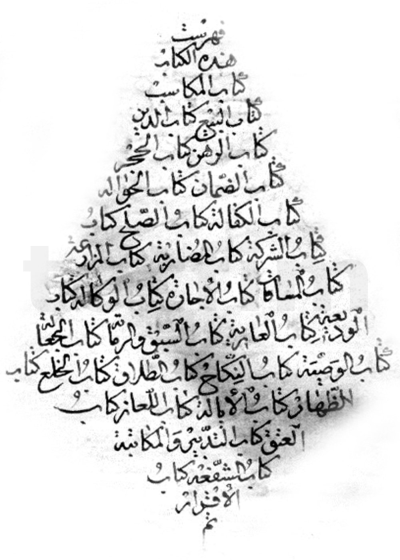 فهرست
هذه الكتاب
كتاب المكاسب
كتاب البيع كتاب الدين
كتاب الرهن كتاب الحجر
كتاب الضمان كتاب الحواله
كتاب الكفالة كتاب الصلح كتاب
كتاب الشركة كتاب المضاربة كتاب المزارعة
كتاب المساقات كتاب الاجارة كتاب الوكالة كتاب
الوديعة كتاب العارية كتاب السبق والرما كتاب الجعالة
كتاب الوصية كتاب النكاح كتاب الطلاق كتاب الخلع كتاب
الظهار كتاب الايلاء كتاب اللعان كتاب
العتق كتاب التدبير والمكاتبة
كتاب الشفعه كتاب
الاقرار
تم